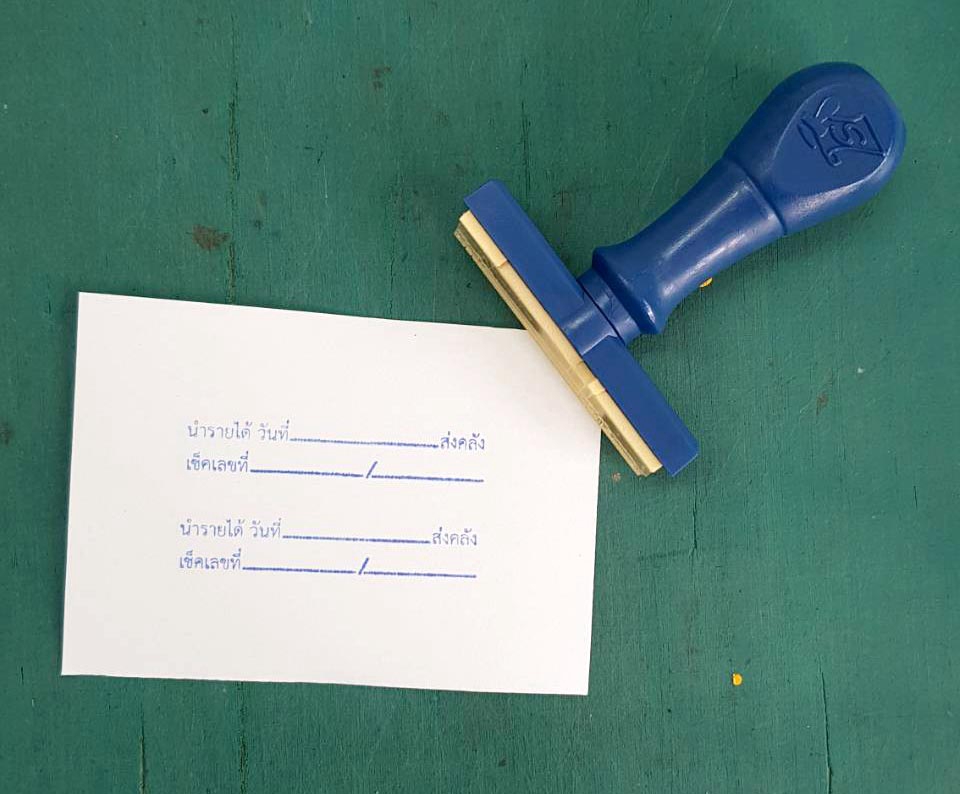 นำรายได้ วันที่____________ส่งคลัง
เช็คเลขที่__________/__________
นำรายได้ วันที่____________ส่งคลัง
เช็คเลขที่__________/__________